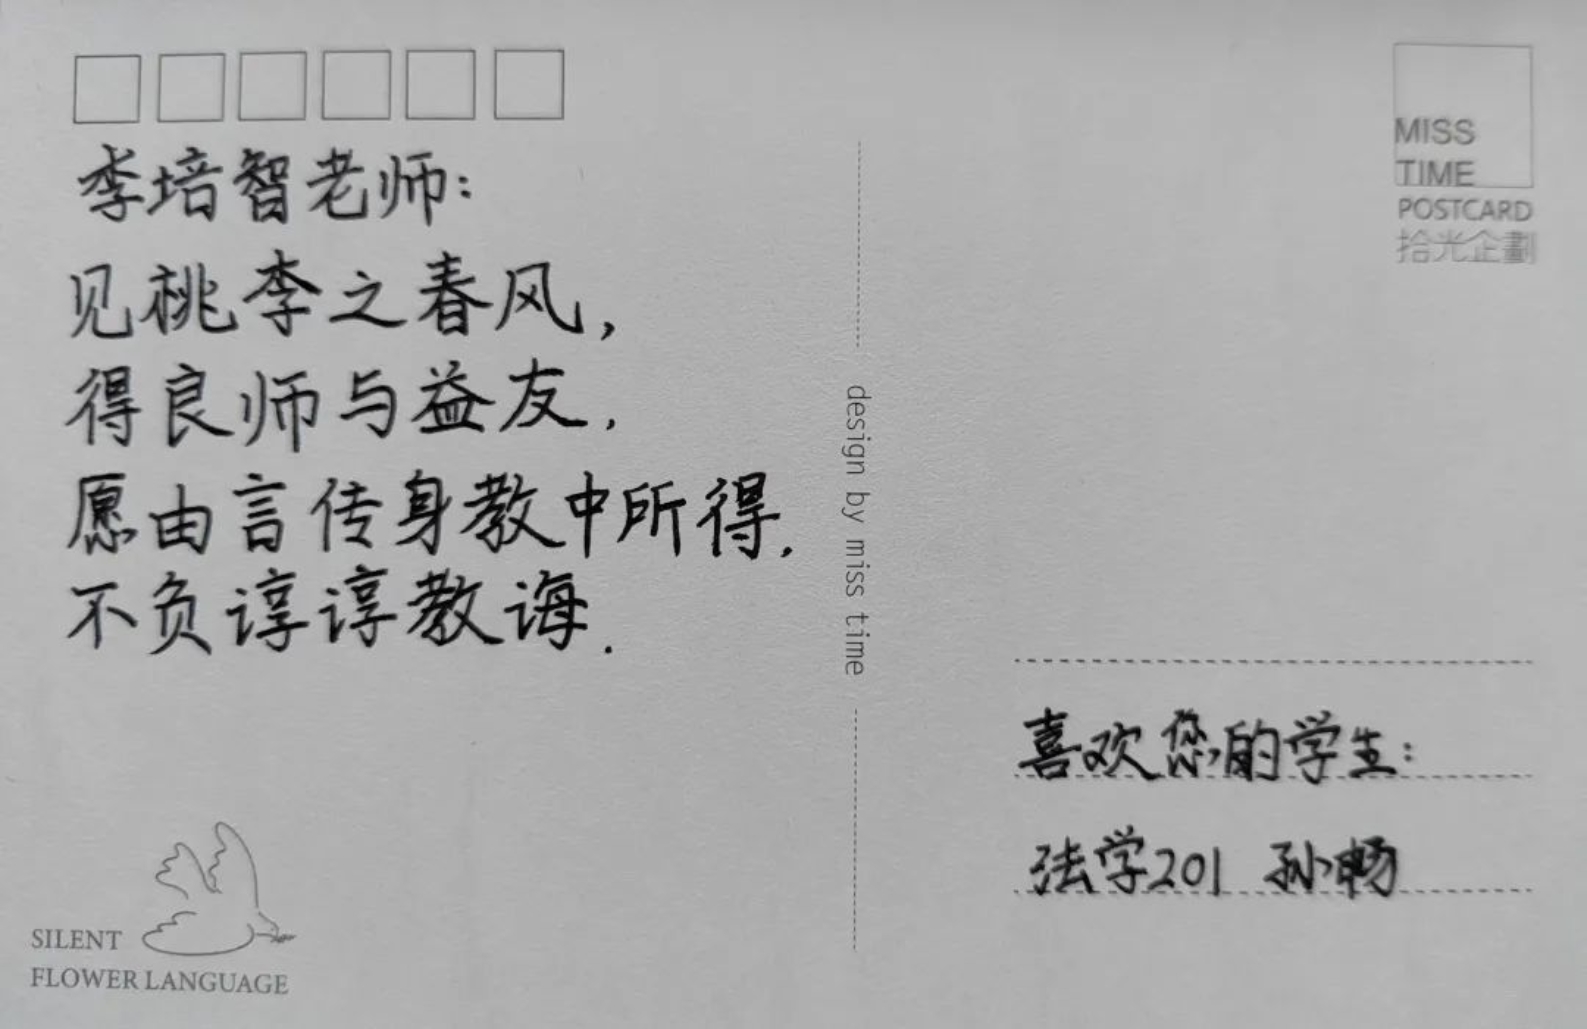 李培智老师：
见桃李之春风，
得良师与益友，
愿由言传身教中所得，
不负谆谆教诲.
SILENT
FLOWER LANGUAGE
design by miss time
MISS
TIME
POSTCARD
拾光企劃
喜欢您的学生：
法学201 孙畅